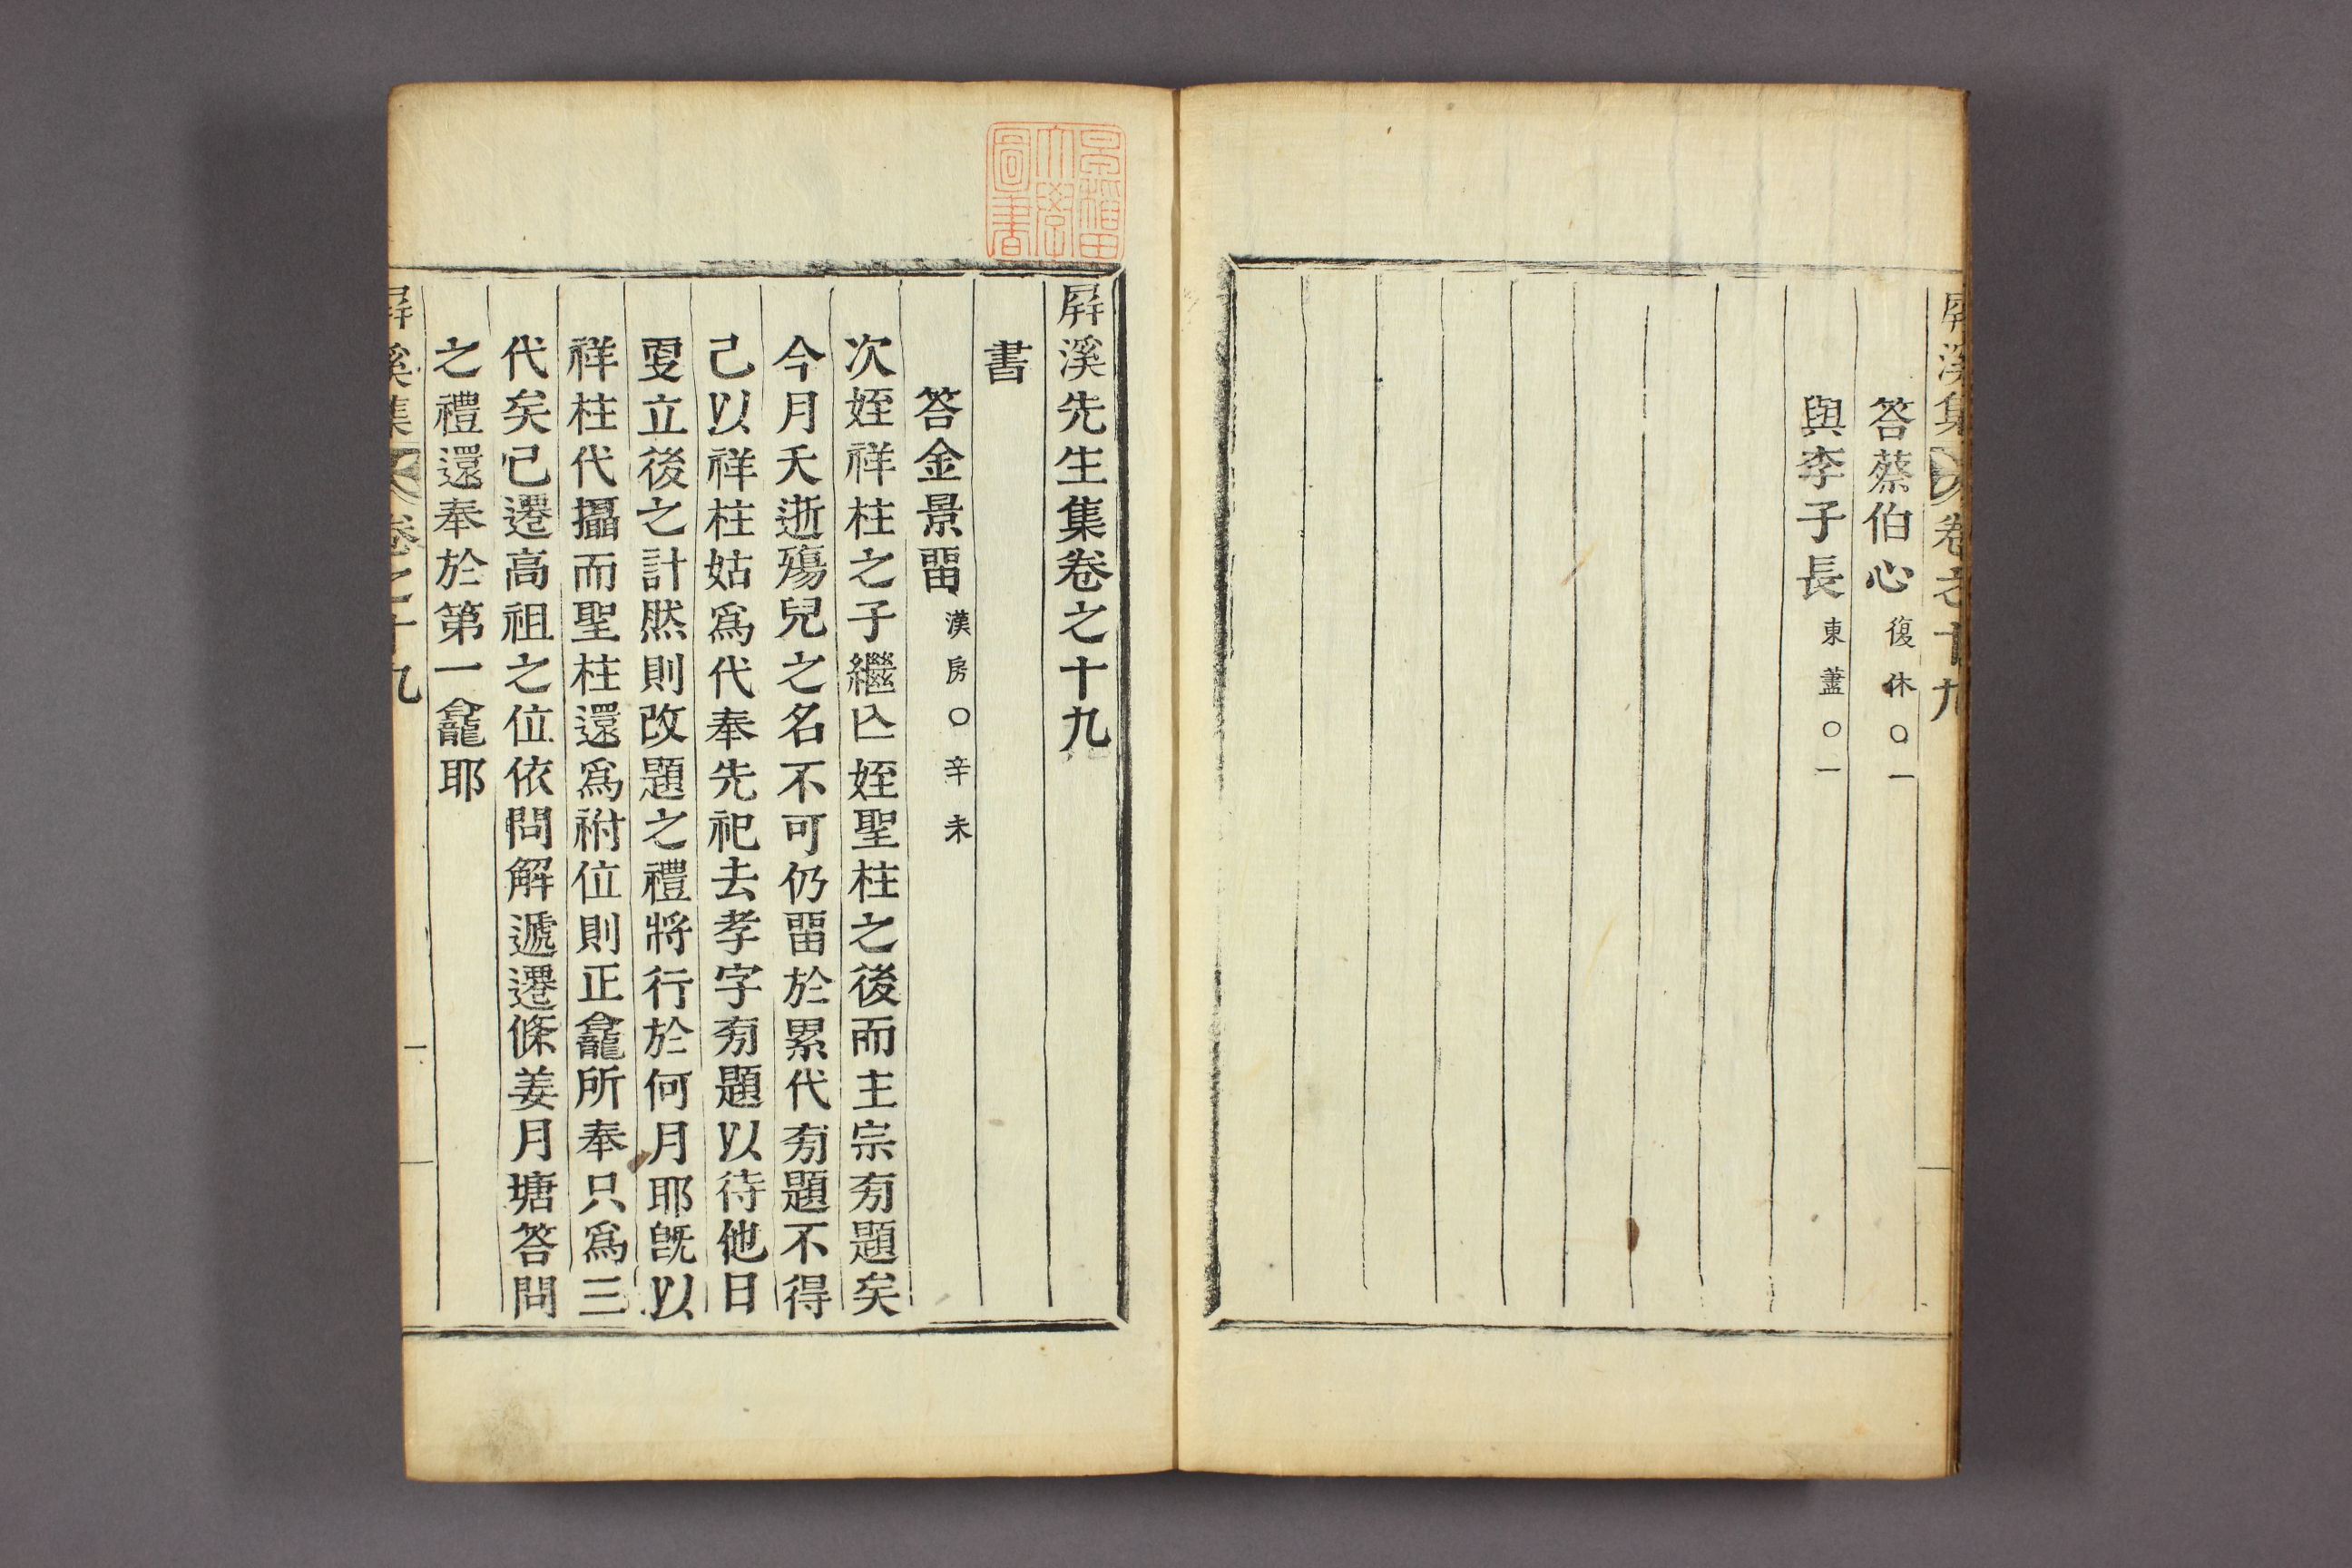 屛溪集 卷之十九
答蔡伯心 復休○一
與李子長 東藎○一
早稻田
大學
圖書
屛溪先生集卷之十九
書
答金景畱 漢房○辛未
次姪祥柱之子繼亾姪聖柱之後而主宗㫄題矣
今月夭逝殤兒之名不可仍畱於累代㫄題不得
己以祥柱姑爲代奉先祀去孝字㫄題以待他日
更立後之計然則改題之禮將行於何月耶旣以
祥柱代攝而聖柱還爲祔位則正龕所奉只爲三
代矣已遷高祖之位依問解遞遷條姜月塘答問
之禮還奉於第一龕耶
屛溪集 卷之十九 一